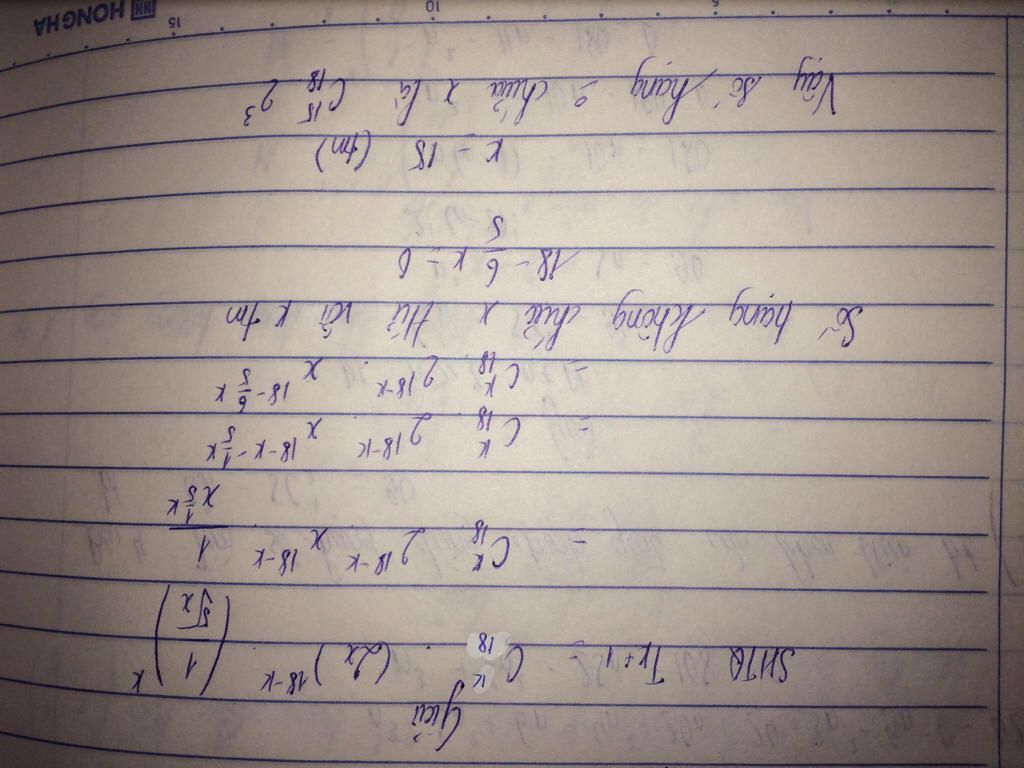 Giải
SHTQ T_{k+1} = C_{18}^{k} . (2x)^{18-k} . (1/⁵√x)^{k}
= C_{18}^{k} . 2^{18-k} . x^{18-k} . 1/x^{1/5 k}
= C_{18}^{k} . 2^{18-k} . x^{18-k-1/5 k}
= C_{18}^{k} . 2^{18-k} . x^{18-6/5 k}
Số hạng không chứa x thì với k tm
18 - 6/5 k = 0
k = 15 (tm)
Vậy số hạng chứa x là C_{18}^{15} 2^{3}
HONG HA
10 15